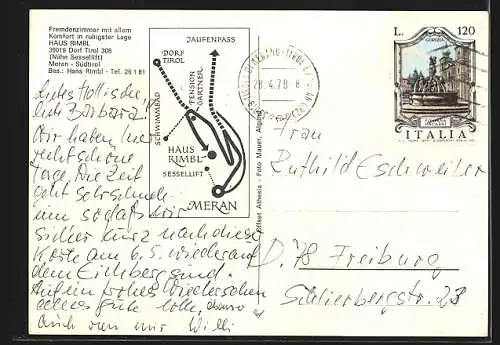 Fremdenzimmer mit allem
Komfort in ruhigster Lage
HAUS RIMBL
39019 Dorf Tirol 308
(Nähe Sessellift)
Meran - Südtirol
Bes.: Hans Rimbl - Tel. 26 1 81
JAUFENPASS
DORF
TIROL
SCHWIMMBAD
PENSION
GARTNER
HAUS
RIMBL
SESSELLIFT
MERAN
28.4.78
L. 120
ITALIA
Offset Athesia - Foto Mauer,
liebe Barbara!
Wir haben hier
recht schöne
Tage. Die Zeit
geht sehr schnell
um sodaß wir
sicher kurz nach diese
Karte am 6.5. wieder auf
dem Eichberg sind.
Auf ein frohes Wiedersehen
alles gute ebenso
auch von mir Willi
Frau
Ruthild Eschweiler
D. 78 Freiburg
Schlierbergstr. 23